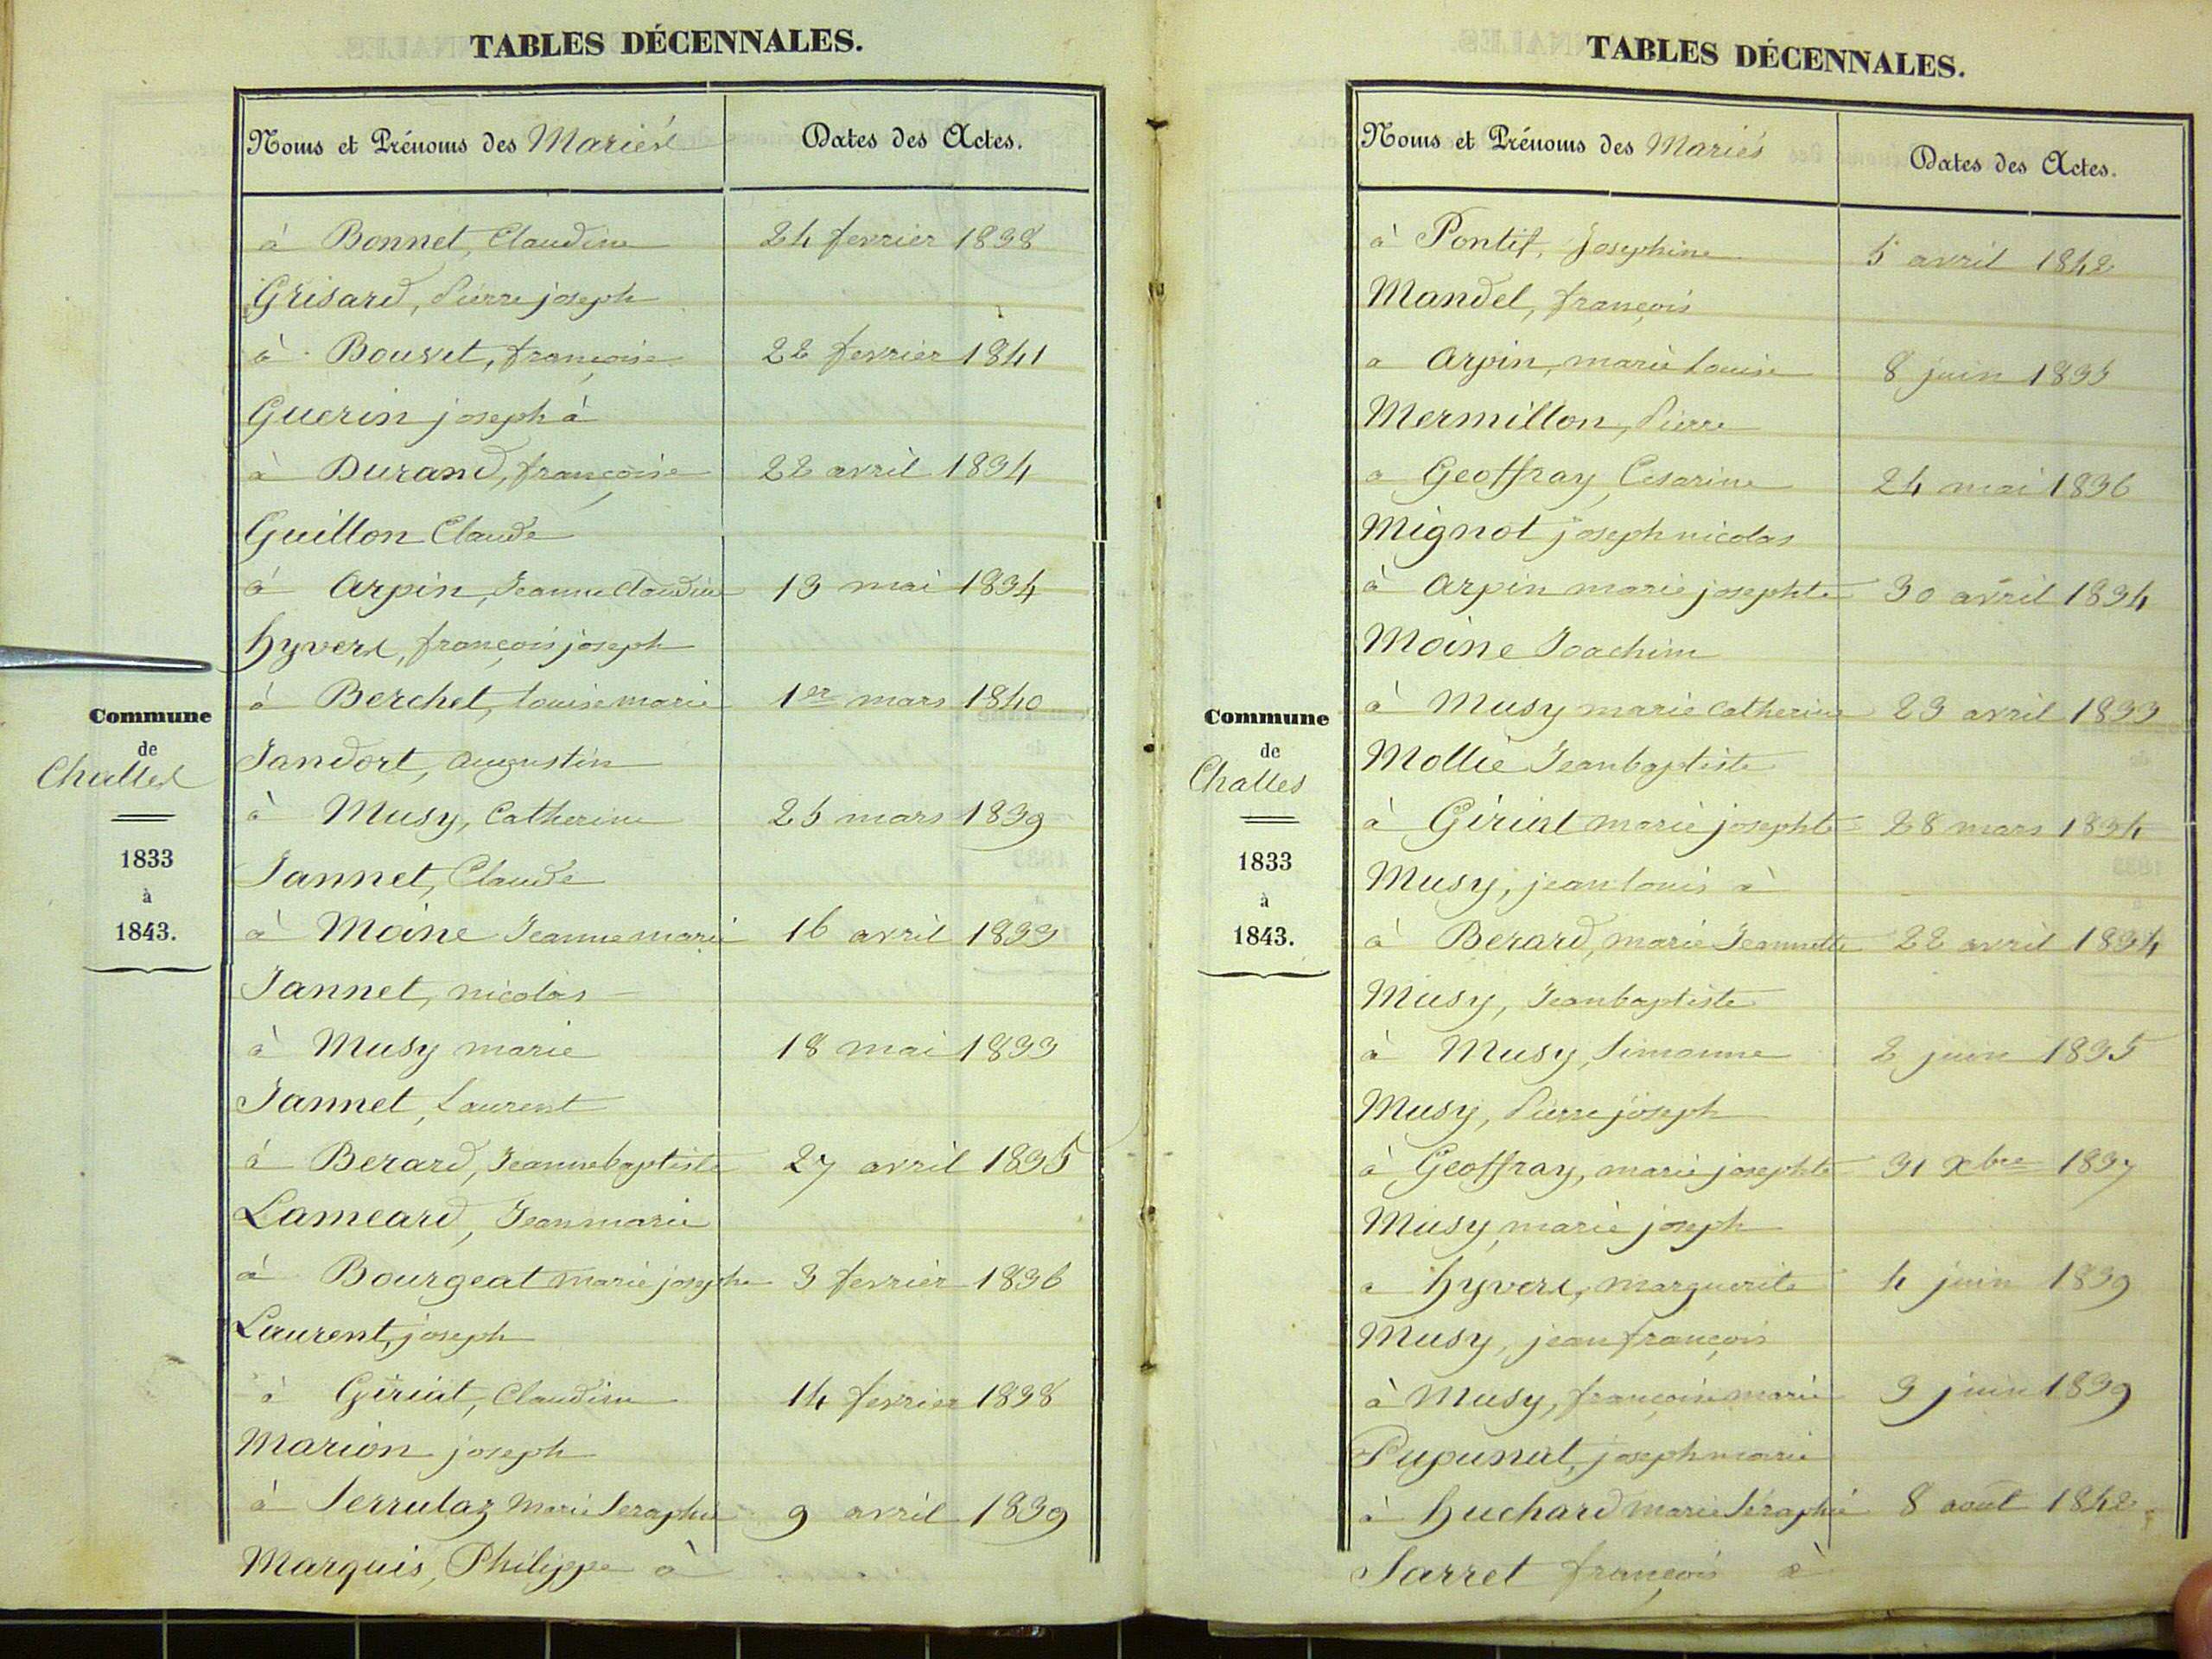 TABLES DÉCENNALES.
Noms et Prénoms des Mariés
Dates des Actes.
à Bonnet, Claudine 24 fevrier 1838
Grisard, Pierre joseph
à Bouvet, françoise 22 fevrier 1841
Guerin joseph à
à Durand, françoise 22 avril 1834
Guillon Claude
à Arpin, Jeanne Claudine 13 mai 1834
hyvert, françois joseph
à Berchet, louise marie 1er mars 1840
Jandort, augustin
à Musy, Catherine 25 mars 1839
Jannet, Claude
à Moine Jeanne marie 16 avril 1833
Jannet, nicolas
à Musy marie 18 mai 1833
Jannet, Laurent
à Berard, Jeanne baptiste 27 avril 1835
Lameard, Jean marie
à Bourgeat marie josephe 3 fevrier 1836
Laurent, joseph
à Giriat, Claudine 14 fevrier 1838
Marion joseph
à Serrulaz Marie Seraphie 9 avril 1839
Marquis, Philippe à
Commune
de
Challes
1833
à
1843.
TABLES DÉCENNALES.
Noms et Prénoms des Mariés
Dates des Actes.
à Pontif, Josephine 5 avril 1842
Mandel, françois
a Arpin, marie louise 8 juin 1835
Mermillon, Pierre
a Geoffray, Cesarine 24 mai 1836
Mignot joseph nicolas
à Arpin marie josephte 30 avril 1834
Moine Joachim
à Musy marie Catherine 23 avril 1833
Mollie Jean baptiste
à Giriat marie josephte 28 mars 1834
Musy, jean louis à
à Berard, marie Jeannette 22 avril 1834
Musy, Jean baptiste
à Musy, Simonne 2 juin 1835
Musy, Pierre joseph
à Geoffray, marie josephte 31 xbre 1837
Musy marie joseph
a hyvert, marguerite 4 juin 1839
Musy, jean françois
à Musy, françoise marie 3 juin 1839
Pupunat, joseph marie
à huchard marie Séraphie 8 août 1842
Sarret françois à
Commune
de
Challes
1833
à
1843.